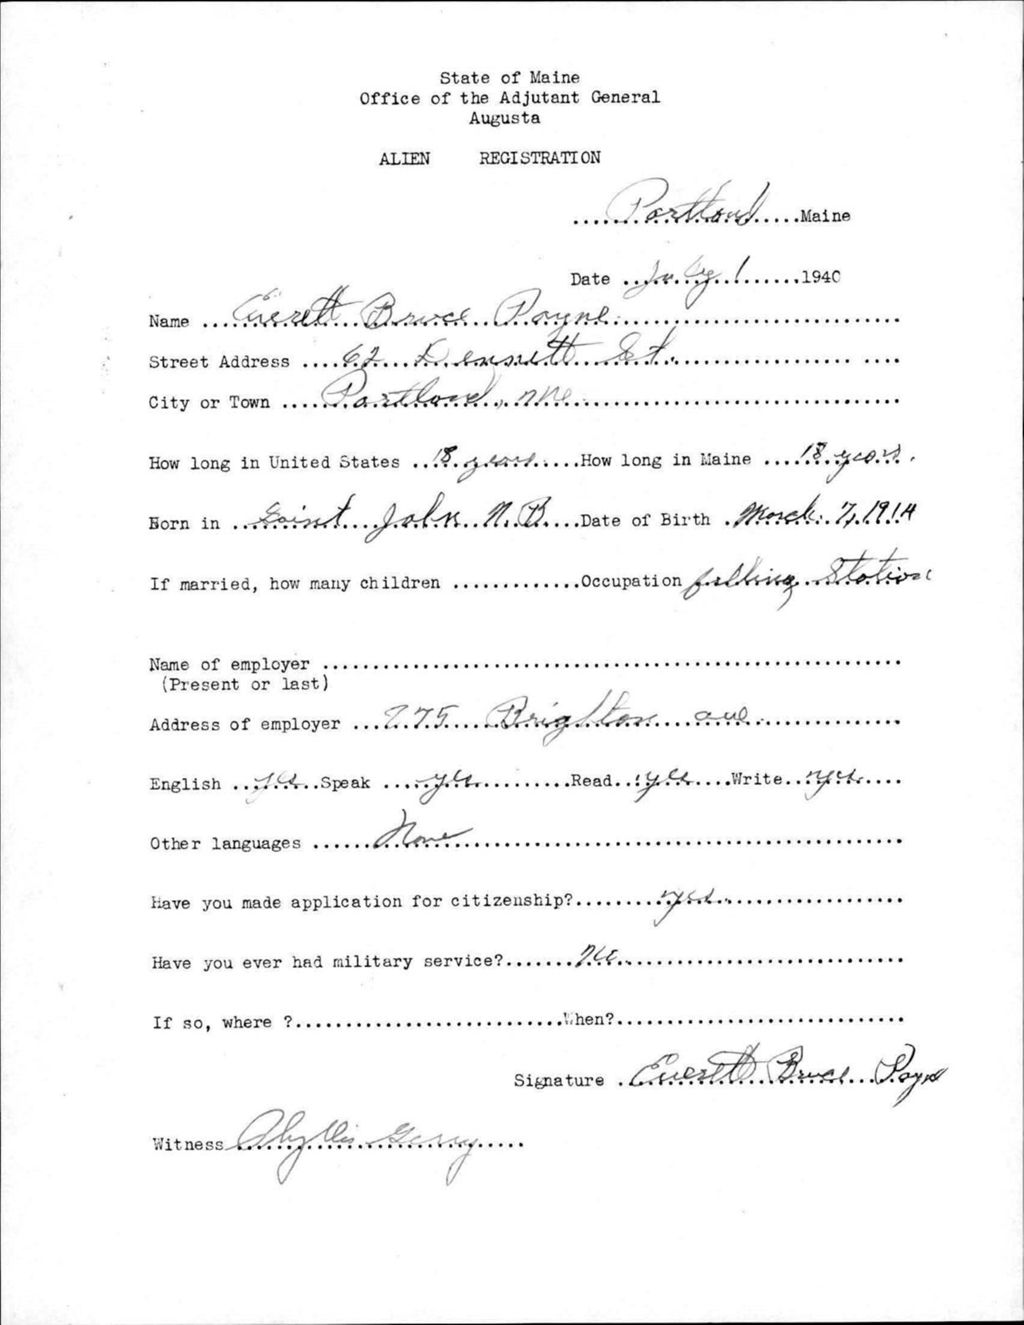 State of Maine
Office of the Adjutant General
Augusta
ALIEN REGISTRATION
......Portland......Maine
Date ...July 1......,1940
Name ...Everett Bruce Payne..............................
Street Address ....62 Dennett St............................
City or Town .....Portland, Me................................
How long in United States ..18 years.....How long in Maine ....18 years.
Born in ..Saint John N.B....Date of Birth .March 7, 1914
If married, how many children .............Occupation filling Station
Name of employer ..........................................................
(Present or last)
Address of employer ...775 Brighton ave...............
English ..yes...Speak ....yes...........Read..yes....Write..yes.....
Other languages ......None............................................
Have you made application for citizenship?.........yes...................
Have you ever had military service?.......No.............................
If so, where ?...........................When?.............................
Signature .Everett Bruce Payne
Witness Phyllis Gerry.....